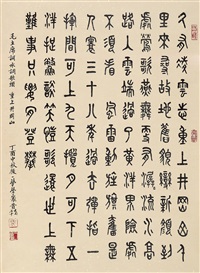 久有凌雲志重上井岡山千
里來尋故地舊貌變新顏到
處鶯歌燕舞更有潺潺流水高
路入雲端過了黃洋界險
處不須看風雷動旌旗奮是
人寰三十八年過去彈指一
揮間可上九天攬月可下五洋
捉鱉談笑凱歌還世上無
難事只要肯登攀
毛主席詞水調歌頭重上井岡山